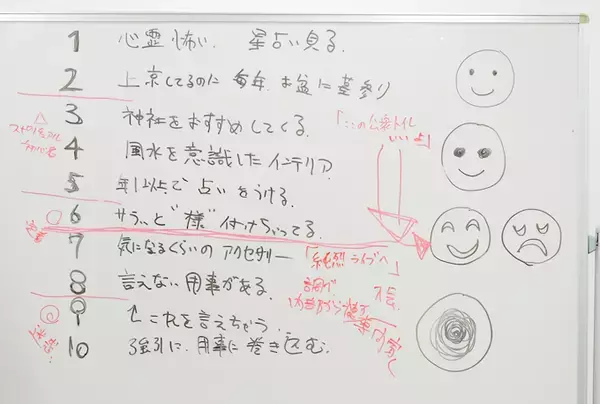 1 心霊怖い. 星占い見る.
2 上京してるのに毎年お盆に墓参り
3 神社をおすすめしてくる.
4 風水を意識したインテリア
5 年1以上で占いをうける.
6 サラッと"様"付けちらってる
7 気になるくらいのアクセサリー
8 言えない用事がある.
9 ↳これを言えちゃう.
10 強引に.用事に巻き込む.
「ここの公衆トイレ
いいよ」
「純烈ライブへ」